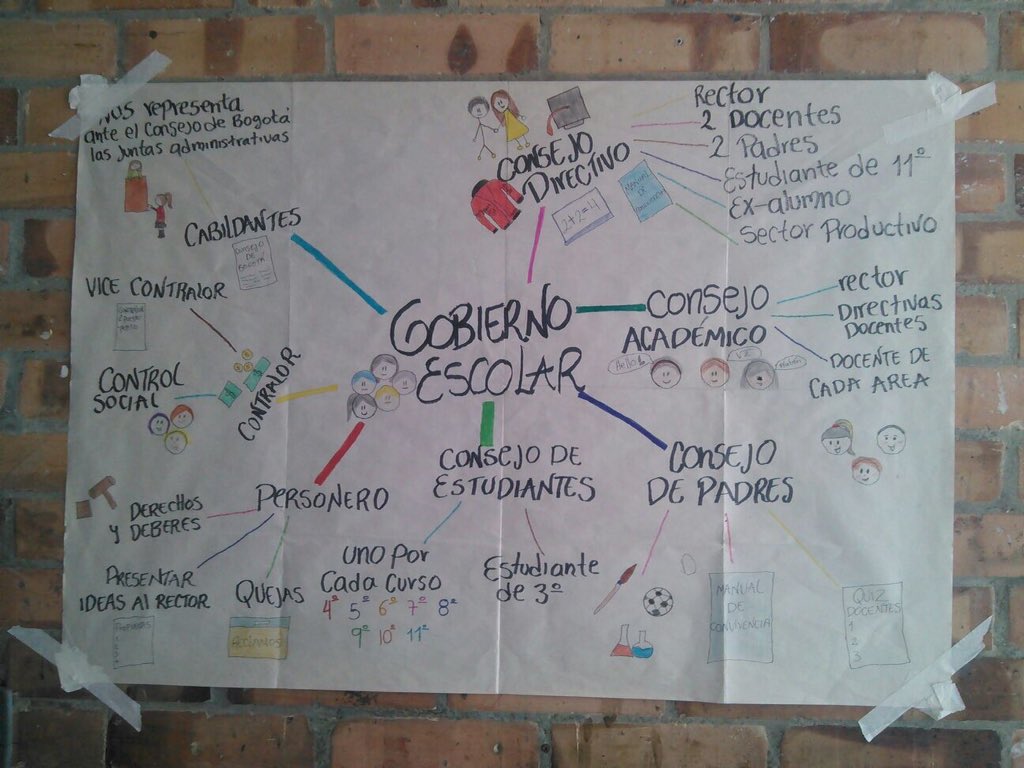 Nos representa
ante el Consejo de Bogotá
las Juntas administrativas
CABILDANTES
CONSEJO
DE
BOGOTÁ
VICE CONTRALOR
CONTROL
SOCIAL
CONTRALOR
GOBIERNO
ESCOLAR
CONSEJO
DIRECTIVO
2+2=4
MANUAL
DE
Rector
2 Docentes
2 Padres
Estudiante de 11º
Ex-alumno
Sector Productivo
CONSEJO
ACADÉMICO
rector
Directivas
Docentes
DOCENTE DE
CADA AREA
Hello
PERSONERO
DERECHOS
Y DEBERES
PRESENTAR
IDEAS Al RECTOR
QUEJAS
RECLAMOS
CONSEJO DE
ESTUDIANTES
uno por
Cada Curso
4º 5º 6º 7º 8º
9º 10º 11º
Estudiante
de 3º
CONSEJO
DE PADRES
MANUAL
DE
CONVIVENCIA
QUIZ
DOCENTES
1
2
3